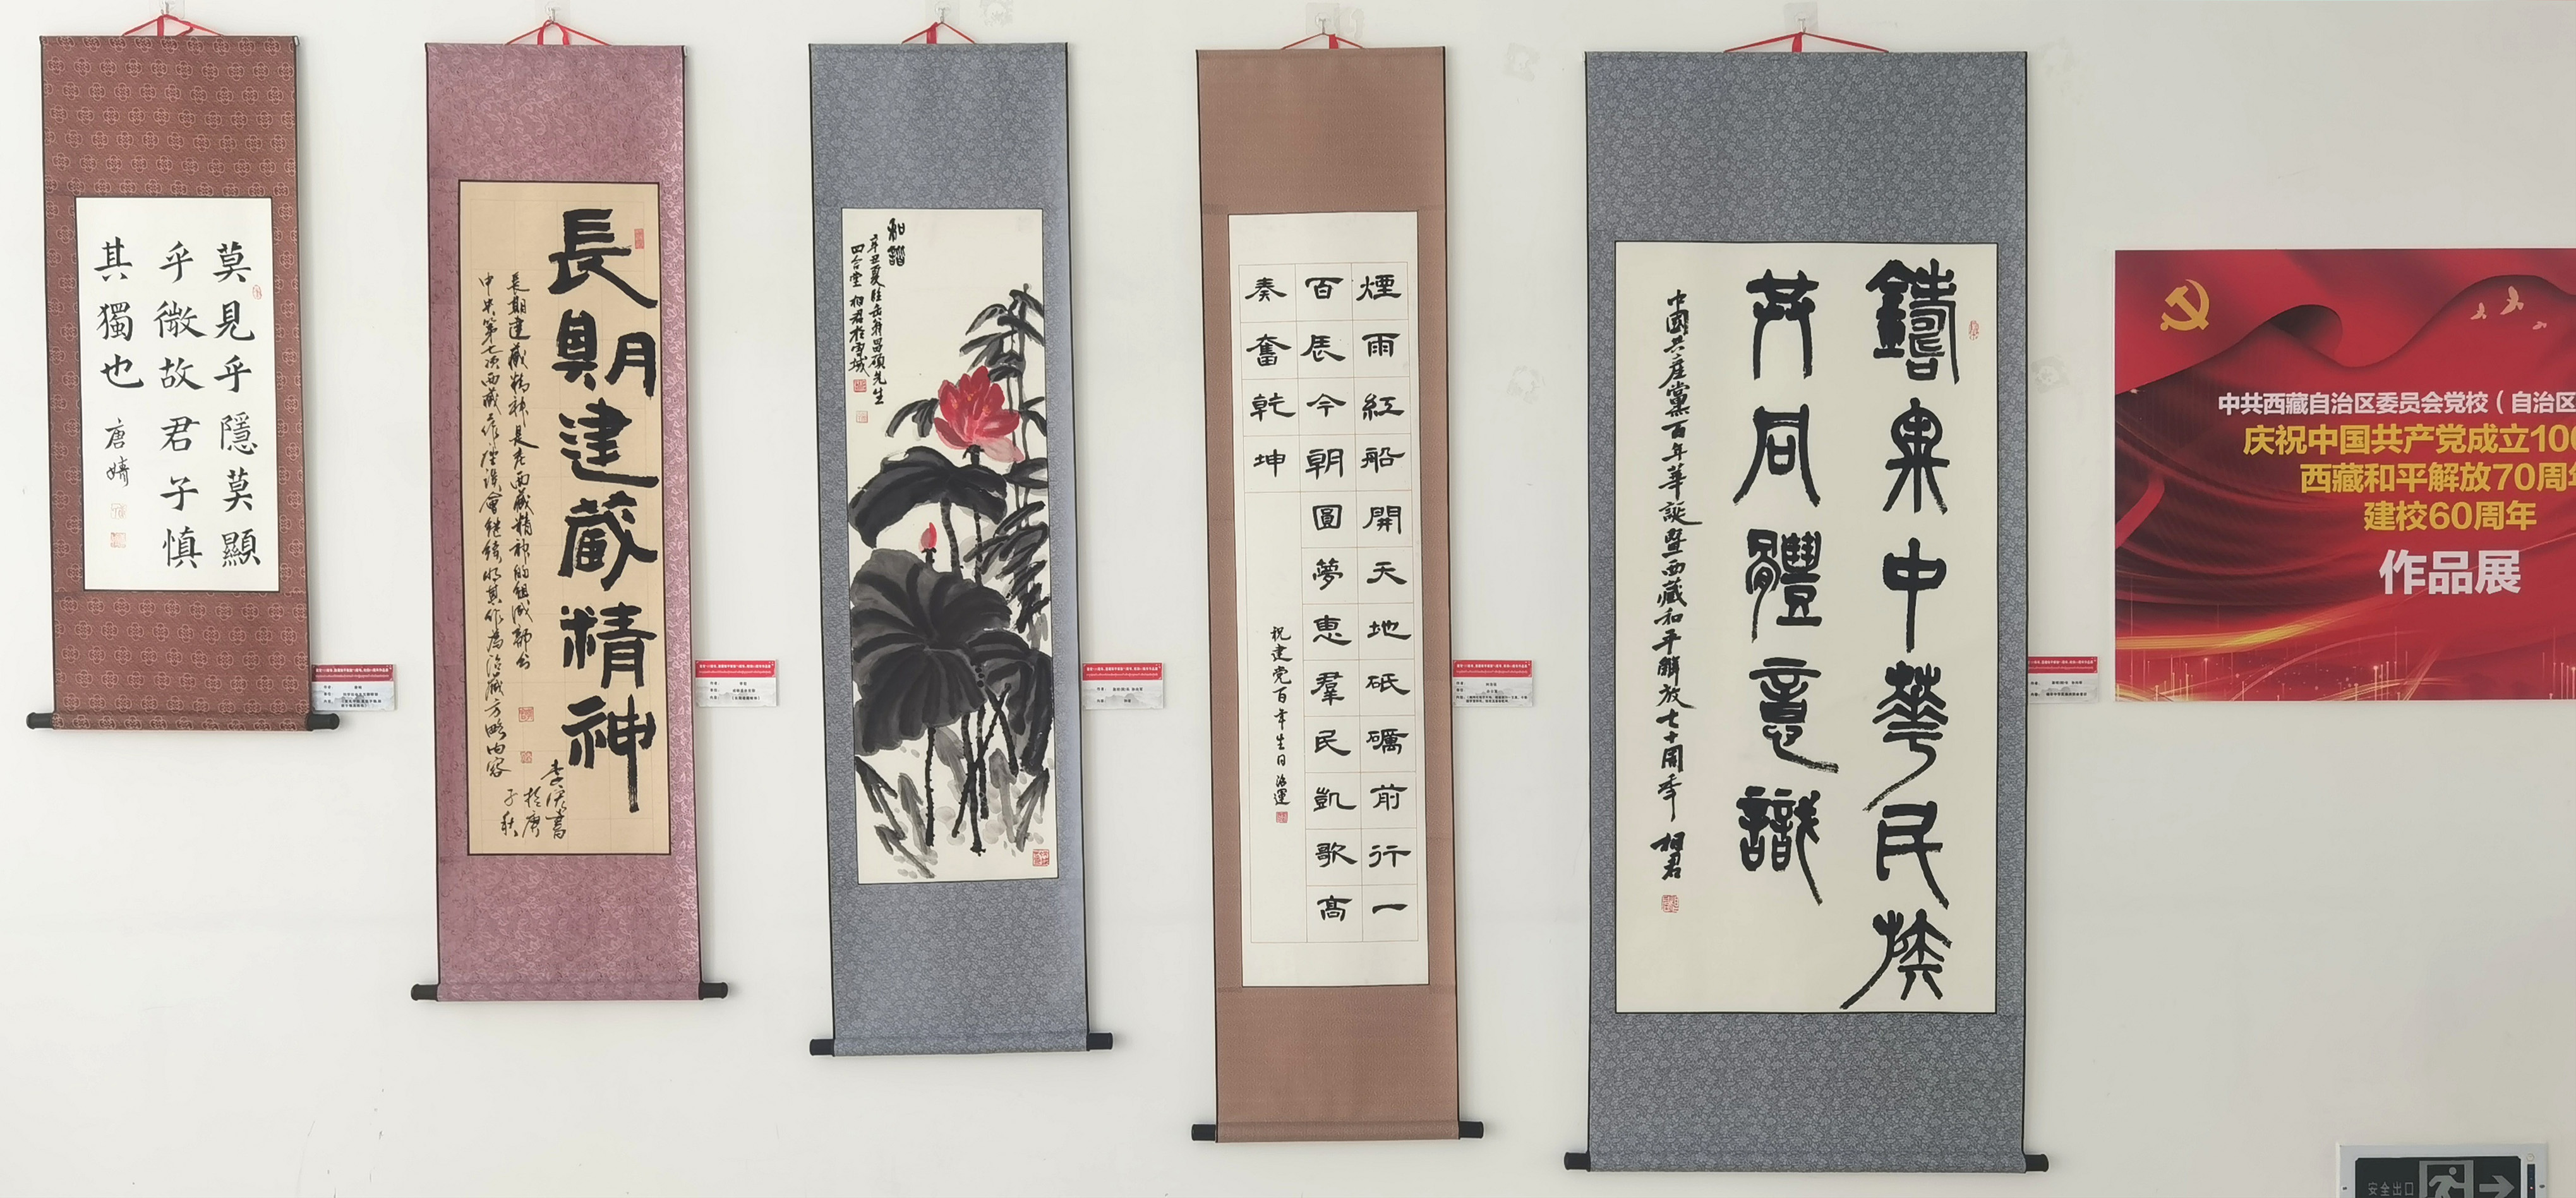 莫見乎隱莫顯
乎微故君子慎
其獨也
唐婧
長期建藏精神
長期建藏精神是老西藏精神的組成部分
中央第七次西藏工作座談會繼續將其作為治藏方略內容
和諧
辛丑夏臨缶翁昌碩先生
四合堂 相君於雪域
煙雨紅船開天地砥礪前行一
百辰今朝圓夢惠羣民凱歌高
奏奮乾坤
祝建党百年生日
鑄牢中華民族
共同體意識
中國共產黨百年華誕暨西藏和平解放七十周年 相君
中共西藏自治区委员会党校（自治区
庆祝中国共产党成立100
西藏和平解放70周年
建校60周年
作品展
安全出口